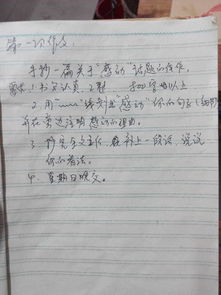 第一次作文
手抄一篇关于“感动”话题的佳作,
要求:1.书写认真,工整 800字以上
2.用“﹏﹏”线划出“感动”你的句子(细节)
并在旁边注明感动的理由。
3.抄完全文之后,在补上一段话,说说
你的看法。
4.星期日晚交。